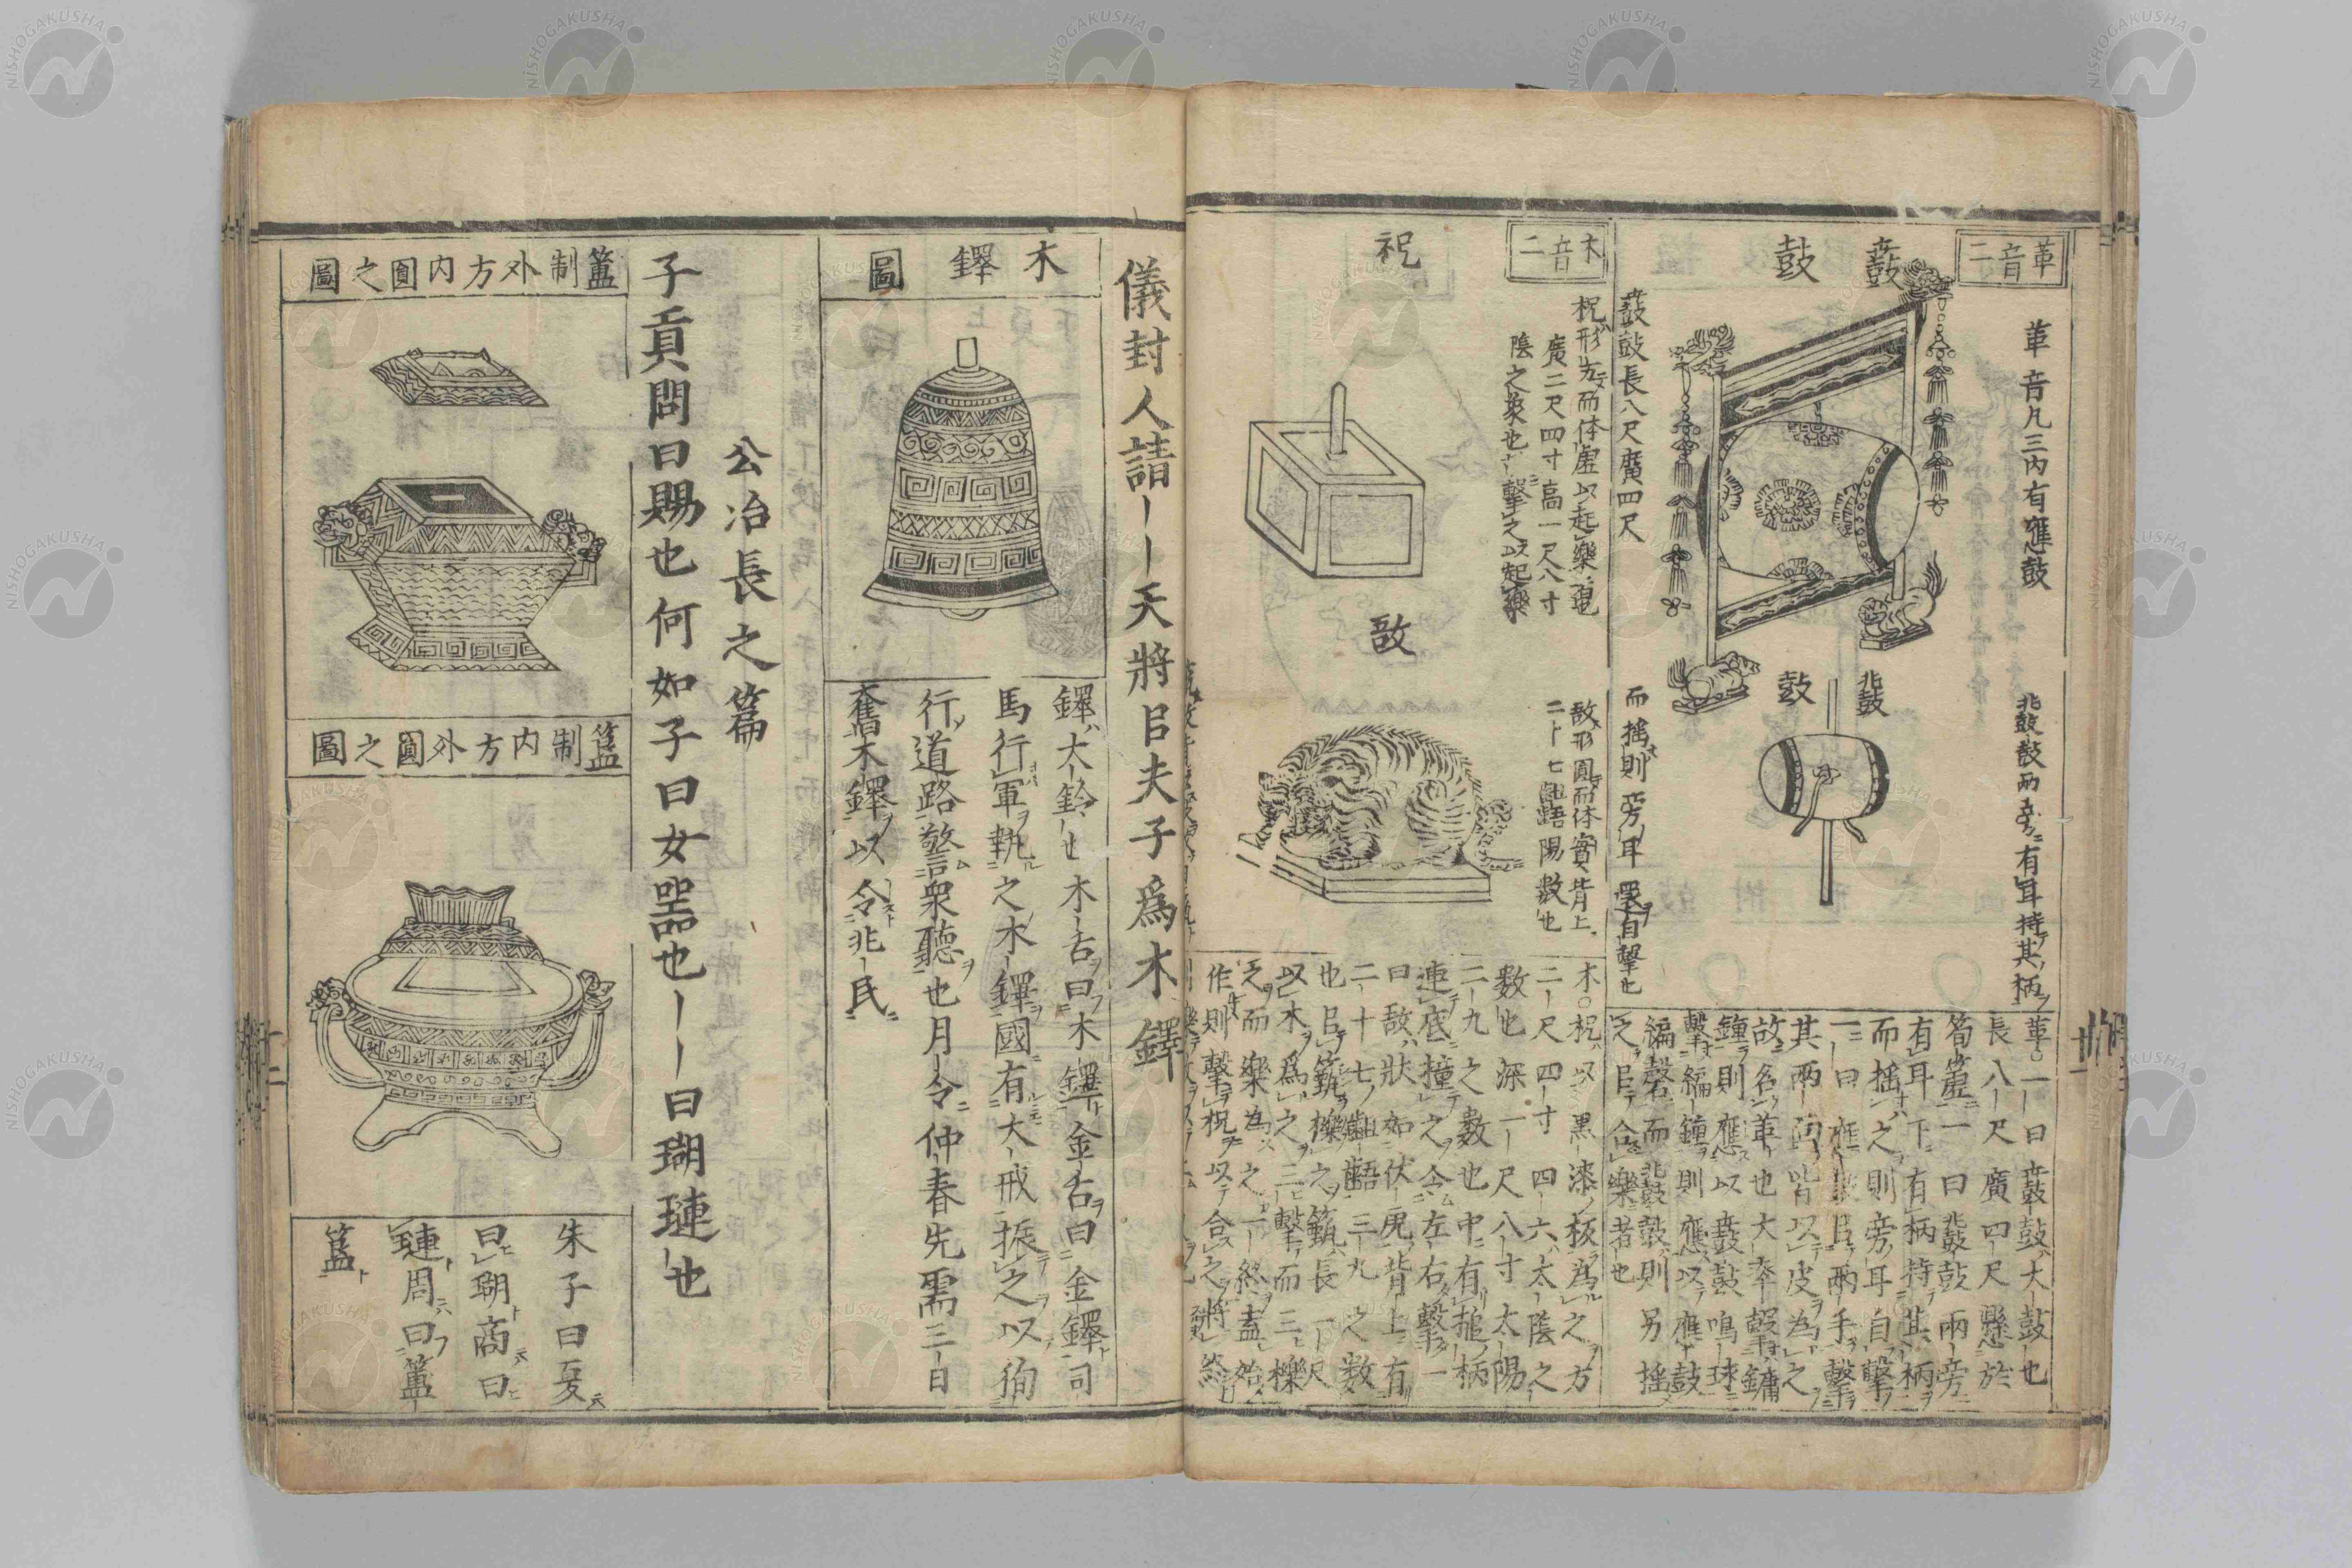 革音二
鼖鼓
革音凡三内有應鼓
鼖鼓長八尺廣四尺
鼗鼓
鼗鼓鼓兩旁有耳持其柄
而搖則旁耳還自擊也
革○一曰鼖鼓大鼓也
長八尺廣四尺懸於
筍簴一曰鼗鼓兩旁
有耳下有柄持其柄
而搖之則旁耳自擊
一曰應鼓以兩手擊
其兩面皆以皮為之
故名革也大奉擊鏞
鐘則應以鼖鼓鳴球
擊編鐘則應以應鼓
編磬而鼗鼓則另搖
之以合樂者也
木音二
祝
柷形方而体虛以起樂
廣二尺四寸高一尺八寸
陰之象也擊之以起樂
敔
敔形圓而体實背上
二十七齟齬陽数也
木○柷以黒漆板為之方
二尺四寸四六太陰之
数也深一尺八寸太陽
二九之数也中有搥柄
連底撞之令左右擊一
曰敔狀如伏虎背上有
二十七齟齬三九之数
也以籈擽之籈長一尺
以木為之三擊而三擽
之而樂為之一終蓋始
作則擊柷以合之將終
儀封人請｜｜天將以夫子為木鐸
木鐸圖
鐸大鈴也木舌曰木鐸金舌曰金鐸司
馬行軍執之木鐸國有大戒振之以徇
行道路警衆聽也月令仲春先雷三日
奮木鐸以令兆民
公冶長之篇
子貢問曰賜也何如子曰女器也｜｜曰瑚璉也
簠制外方内圓之圖
簋制内方外圓之圖
朱子曰夏
曰瑚商曰
璉周曰簠
簋
十二
NISHOGAKUSHA